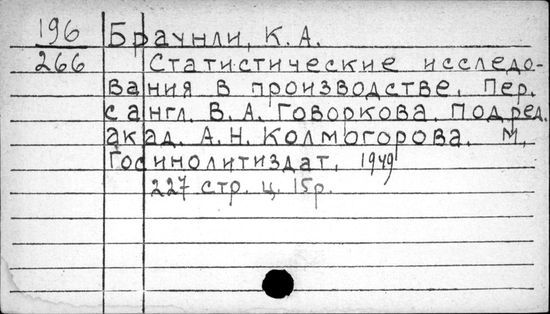 196 Браунли, К. А.
266 Статистические исследо-
вания в производстве. Пер.
с англ. В. А. Говоркова. Под ред.
акад. А. Н. Колмогорова. М.
Госинолитиздат, 1949
227 стр. ц. 15р.